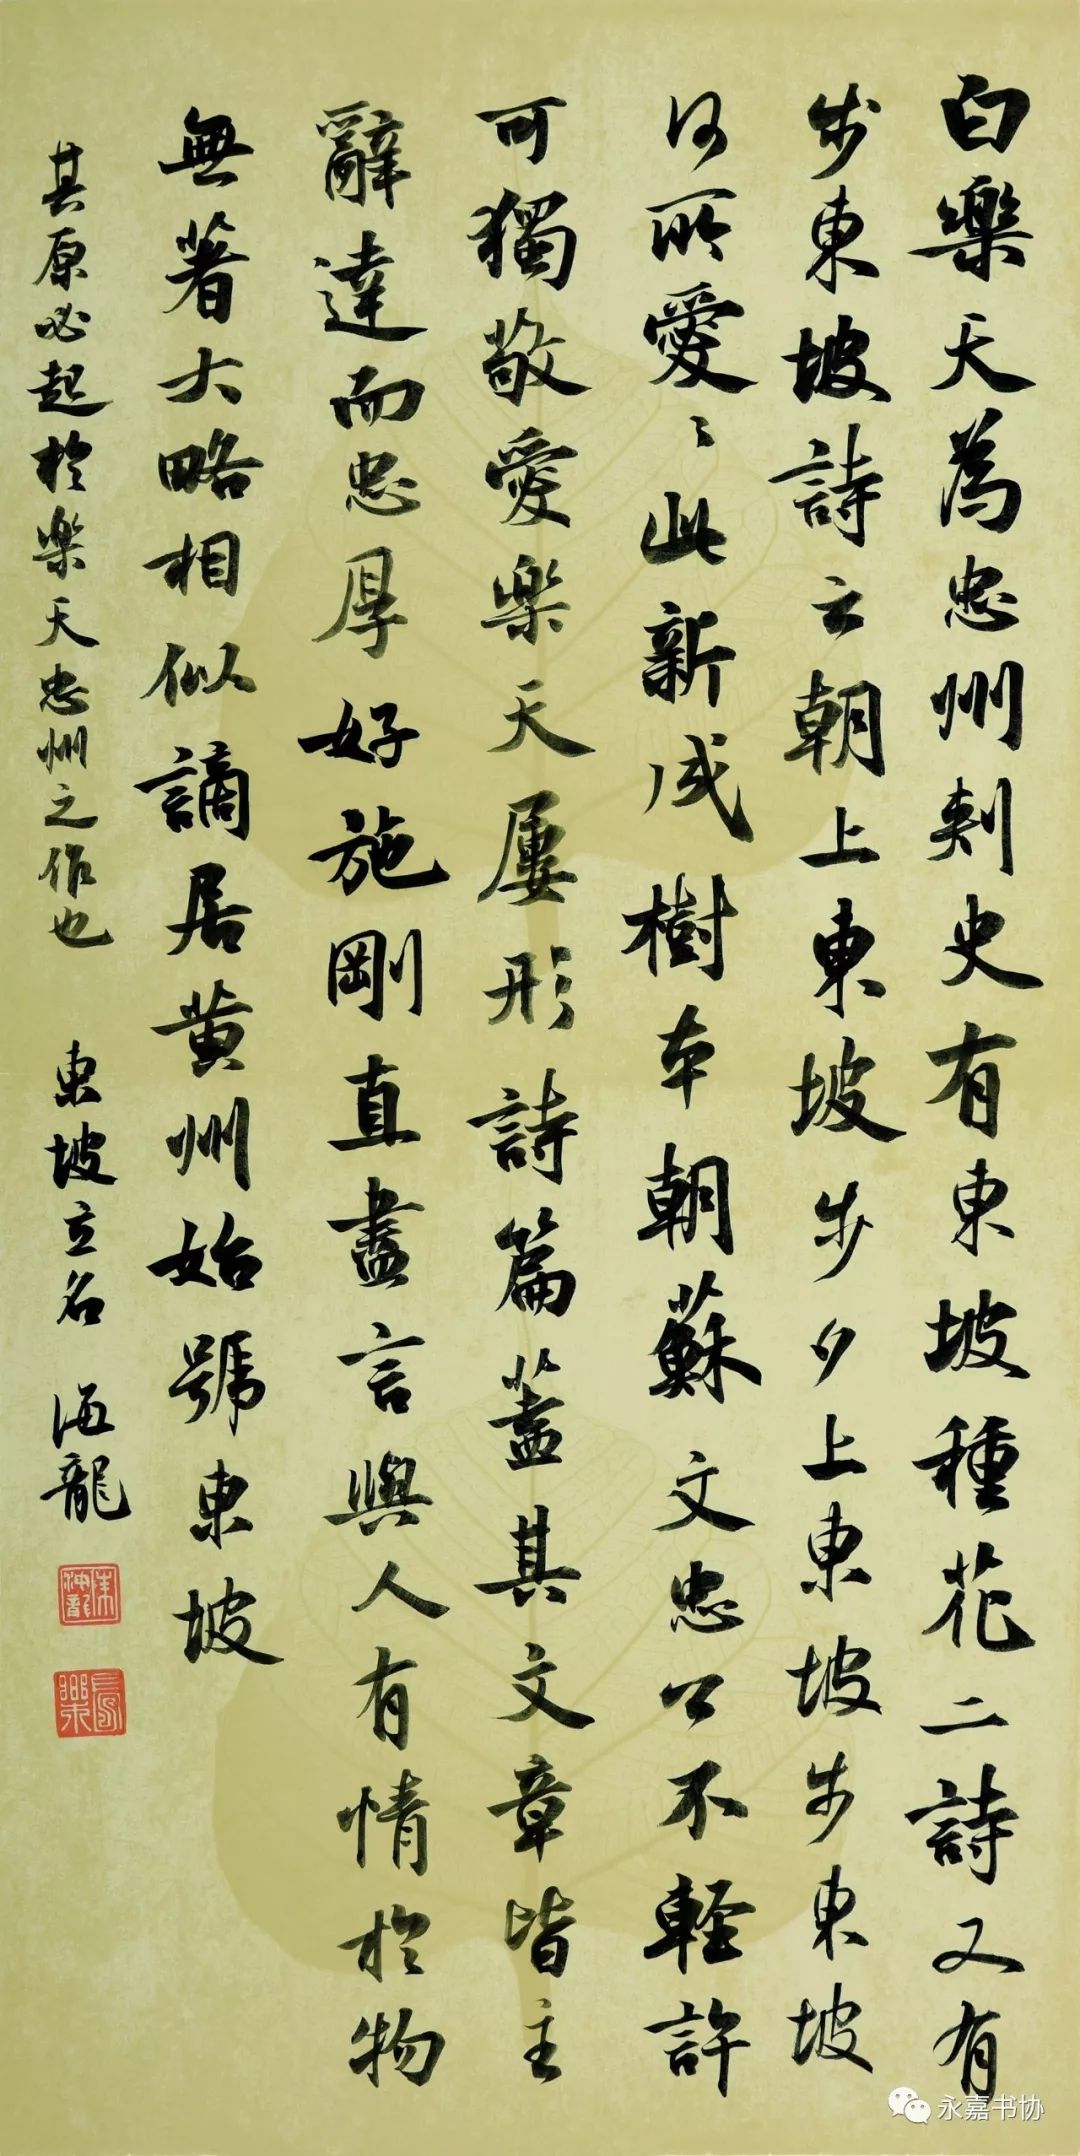 白樂天為忠州刺史有東坡種花二詩又有
步東坡詩云朝上東坡步夕上東坡步東坡
何所愛愛此新成樹本朝蘇文忠公不輕許
可獨敬愛樂天屢形詩篇蓋其文章皆主
辭達而忠厚好施剛直盡言與人有情於物
無著大略相似謫居黄州始號東坡
其原必起於樂天忠州之作也 東坡立名 海龍
永嘉书协